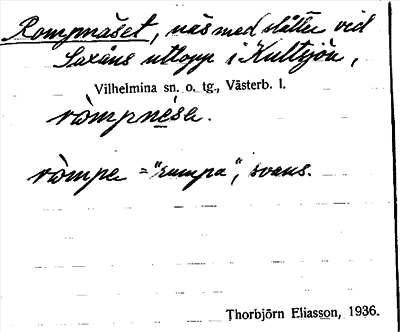 Rompnäset, näs med slåtter vid
Saxåns utlopp i Kultsjön,
Vilhelmina sn. o. tg., Västerb. l.
ròmpnésə.
ròmpe = "rumpa", svans.
Thorbjörn Eliasson, 1936.